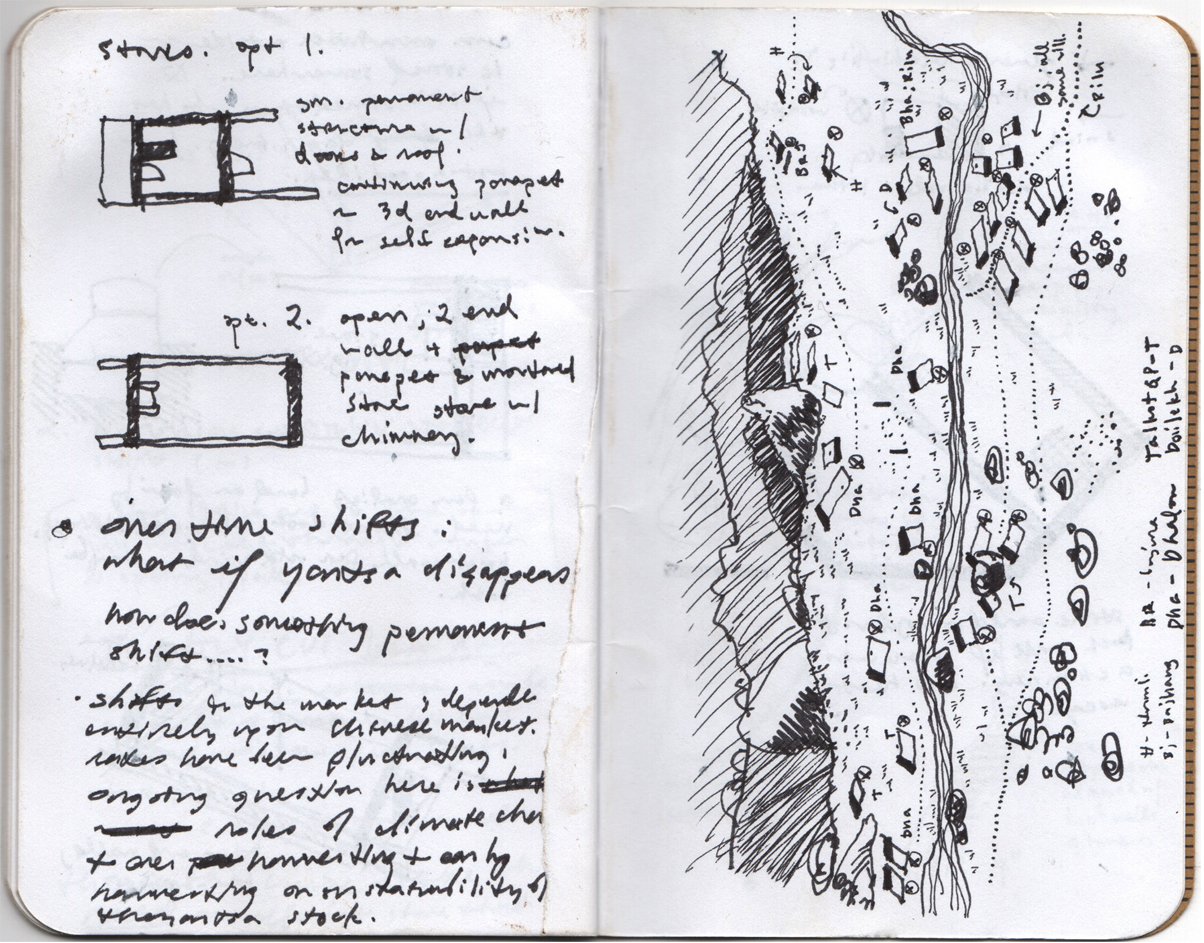 stoves. opt 1.
sm. permanent
structure w/
doors & roof.
continuing parapet
~ 3d end wall
for self expansion.
opt. 2. open, 2 end
wall +
parapet & mortared
stone stove w/
chimney.
over time shifts:
what if yartsa disappears
how does something permanent
shift....?
· shifts in the market; depends
entirely upon chinese market.
rates have been fluctuating;
ongoing question here is
roles of climate cha
+ over harvesting + early
harvesting on sustainability of
the yartsa stock.
H
Bj
H
Bhajrilu
D
Bj, all
same vill.
Tpilu
T
Dha
Dha
Dha
Dha
T
T
T
Dha
H - Humli
Bj - Bajhang
Dha - Dhalon
Dailekh - D